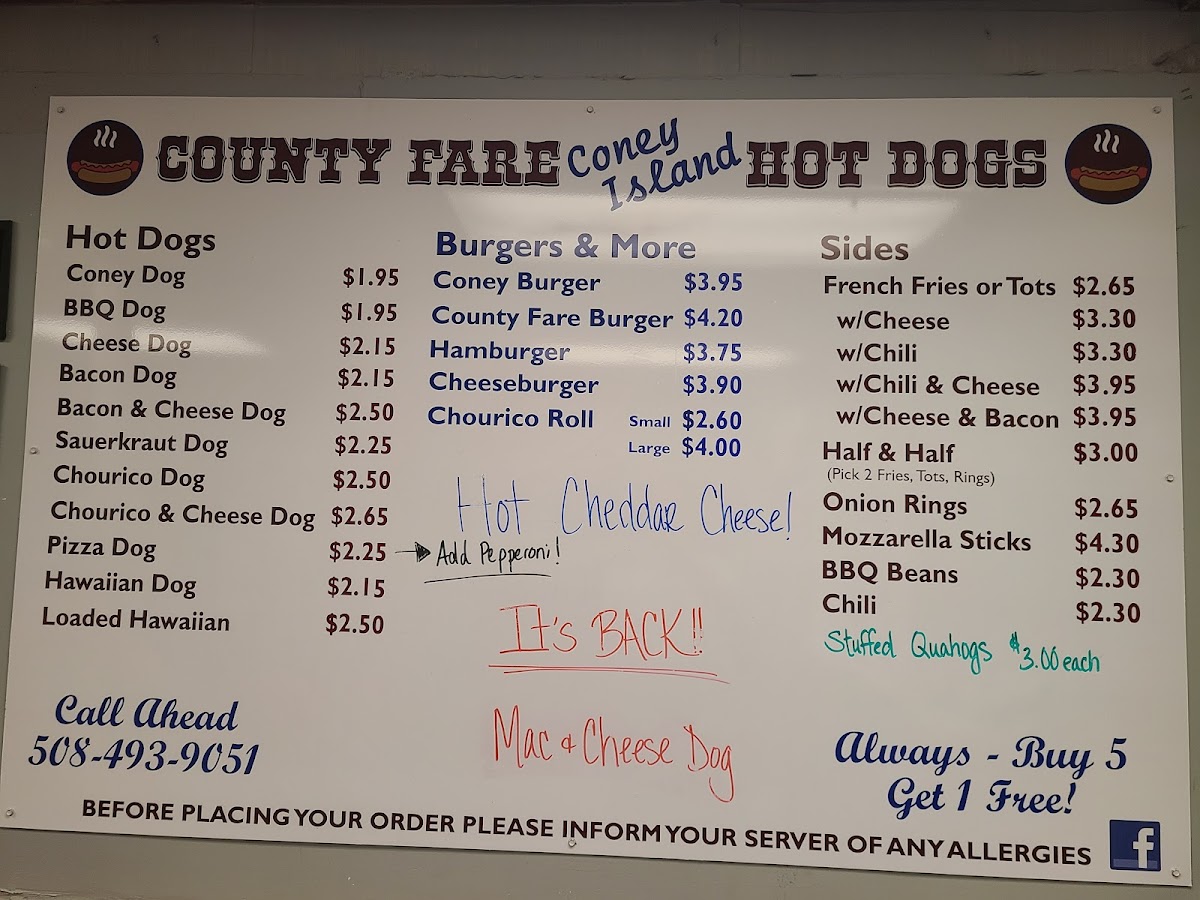 COUNTY FARE Coney Island HOT DOGS
Hot Dogs
Coney Dog $1.95
BBQ Dog $1.95
Cheese Dog $2.15
Bacon Dog $2.15
Bacon & Cheese Dog $2.50
Sauerkraut Dog $2.25
Chourico Dog $2.50
Chourico & Cheese Dog $2.65
Pizza Dog $2.25 Add Pepperoni!
Hawaiian Dog $2.15
Loaded Hawaiian $2.50
Burgers & More
Coney Burger $3.95
County Fare Burger $4.20
Hamburger $3.75
Cheeseburger $3.90
Chourico Roll Small $2.60
Large $4.00
Hot Cheddar Cheese!
It's BACK!!
Mac & Cheese Dog
Sides
French Fries or Tots $2.65
w/Cheese $3.30
w/Chili $3.30
w/Chili & Cheese $3.95
w/Cheese & Bacon $3.95
Half & Half $3.00
(Pick 2 Fries, Tots, Rings)
Onion Rings $2.65
Mozzarella Sticks $4.30
BBQ Beans $2.30
Chili $2.30
Stuffed Quahogs $3.00 each
Call Ahead
508-493-9051
Always - Buy 5
Get 1 Free!
BEFORE PLACING YOUR ORDER PLEASE INFORM YOUR SERVER OF ANY ALLERGIES
f